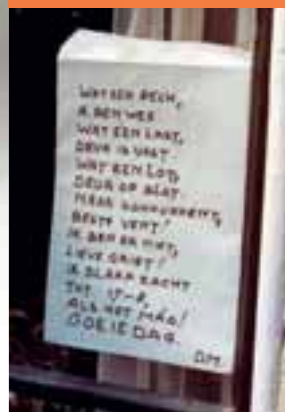 WAT EEN PECH,
IK BEN WEG
WAT EEN LAST,
DEUR IS VAST
WAT EEN LOT,
DEUR OP SLOT.
MAAR
BESTE VENT!
IK BEN ER NIET,
LIEVE GRIET!
IK SLAAP ZACHT
TOT 17-8,
ALS HET MAG!
GOEIEDAG.
D.M.